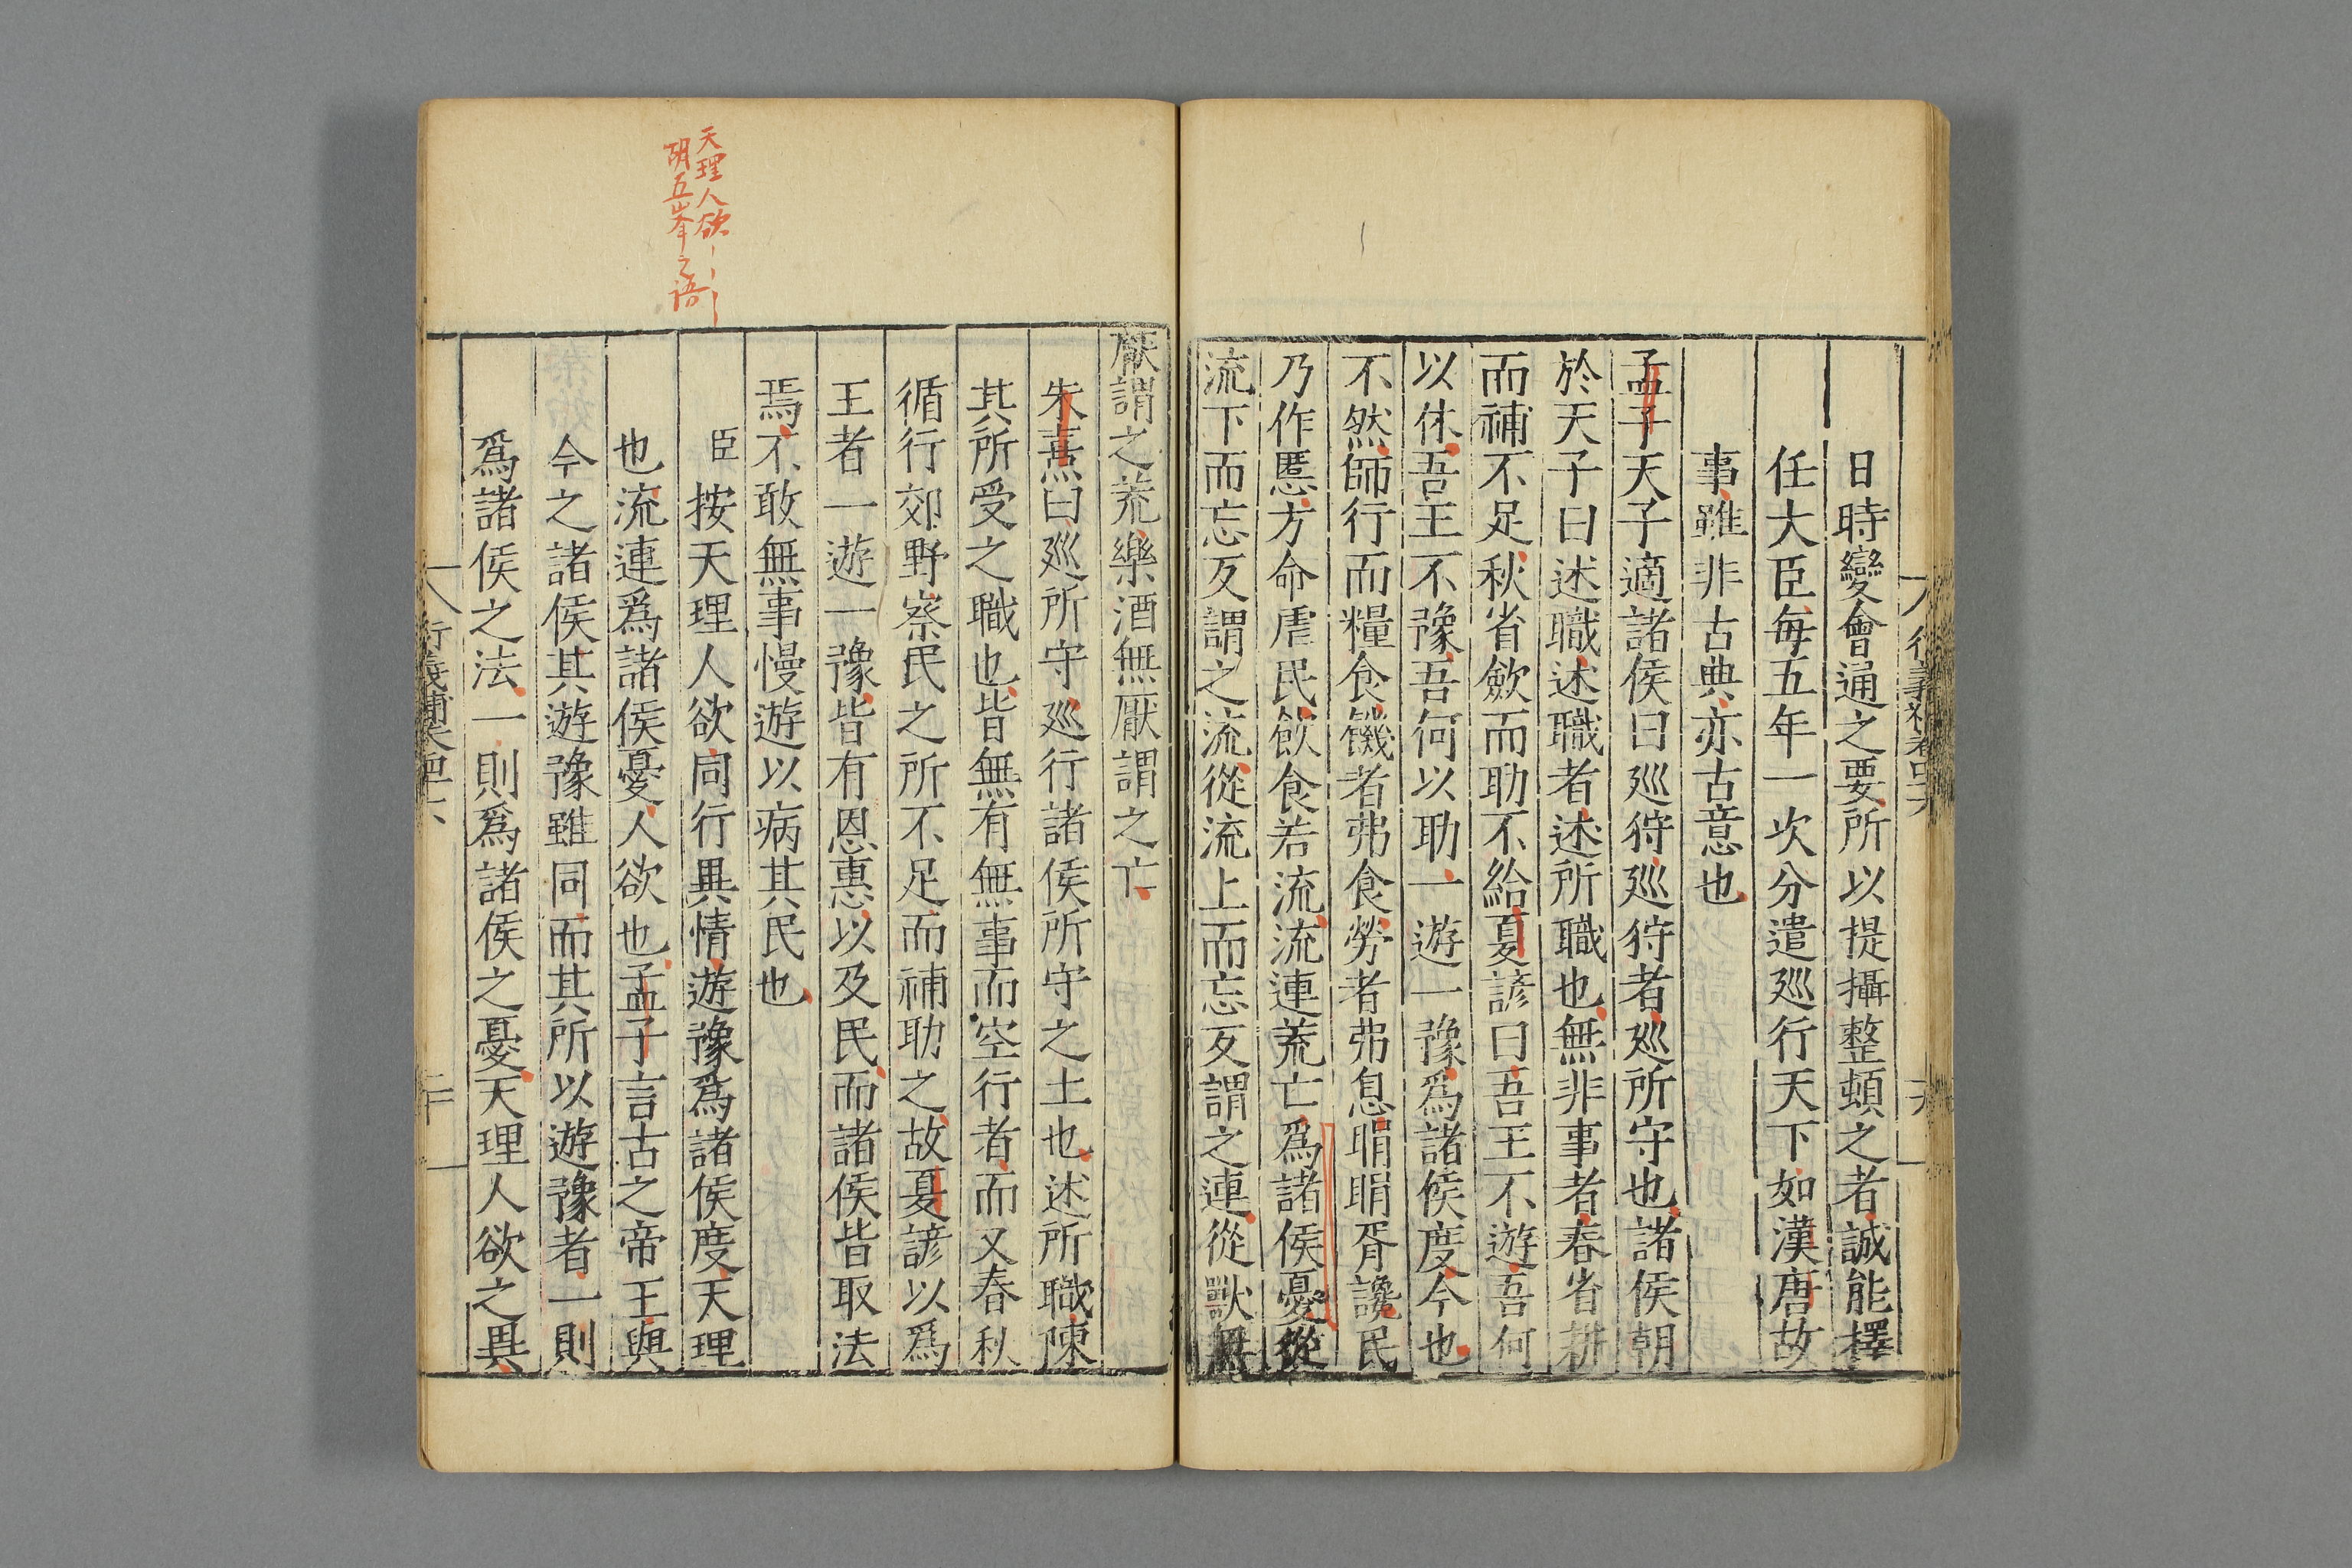 日時變會通之要所以提攝整頓之者誠能擇
任大臣每五年一次分遣廵行天下如漢唐故
事雖非古典亦古意也
孟子天子適諸侯曰廵狩廵狩者廵所守也諸侯朝
於天子曰述職述職者述所職也無非事者春省耕
而補不足秋省斂而助不給夏諺曰吾王不遊吾何
以休吾王不豫吾何以助一遊一豫爲諸侯度今也
不然師行而糧食饑者弗食勞者弗息睊睊胥讒民
乃作慝方命虐民飲食若流流連荒亡爲諸侯憂從
流下而忘反謂之流從流上而忘反謂之連從獸無
厭謂之荒樂酒無厭謂之亡
朱熹曰廵所守廵行諸侯所守之土也述所職陳
其所受之職也皆無有無事而空行者而又春秋
循行郊野察民之所不足而補助之故夏諺以爲
王者一遊一豫皆有恩惠以及民而諸侯皆取法
焉不敢無事慢遊以病其民也
臣按天理人欲同行異情遊豫爲諸侯度天理
也流連爲諸侯憂人欲也孟子言古之帝王與
今之諸侯其遊豫雖同而其所以遊豫者一則
爲諸侯之法一則爲諸侯之憂天理人欲之異
天理人欲
胡五峯之語